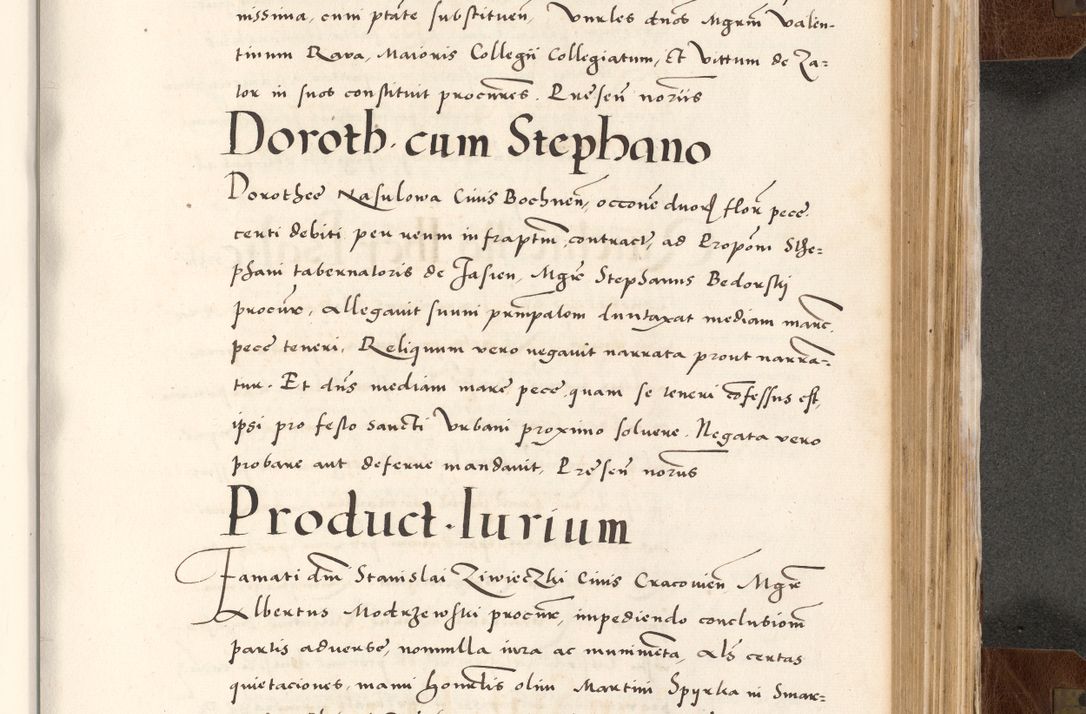 nissima, cum ptate substituen, Vnrles dnos Mgrm Valen-
tinum Rava, Maioris Collegii Collegiatum, Et Vittum de Za=
tor in suos constituit procures. Presen noriis
Doroth. cum Stephano
Dorothee Nasulowa Civis Bochnen, occone duor flor pece
certi debiti per veum infraptm contract, ad Propom Sthe=
phani tabernatoris de Jasien, Mgr Stephanus Bedorski
procur, Allegavit suum prmpalem duntaxat mediam marc
pece teneri, Reliquum vero negavit narrata prout narra=
tur. Et dns mediam marc pece, quam se teneri cofessus est,
ipsi pro festo sancti Vrbani proximo solvere. Negata vero
probare aut deferre mandavit, Presen noriis
Product. Iurium
Famati dm Stanislai Ziwieczki Civis Cracovien Mgr
Albertus Modrzewski procur, impediendo conclusiom
partis adverse, nonnulla iura ac munimeta, Als certas
quietaciones, manu honestis olim Martini Spyrka in Smar=